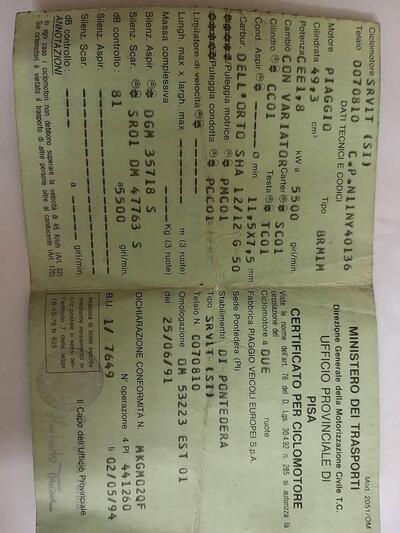 Mod. 2051/OM
MINISTERO DEI TRASPORTI
Direzione Generale della Motorizzazione Civile T.C.
UFFICIO PROVINCIALE DI
PISA
CERTIFICATO PER CICLOMOTORE
Viste le norme dell'art. 76 del D. Lgs 30.4.92 n. 285 si autorizza la
circolazione del
Ciclomotore a DUE ruote
Fabbrica PIAGGIO VEICOLI EUROPEI S.p.A.
Sede Pontedera (PI)
Stabilimento DI PONTEDERA
Tipo SRV1T (SI)
Telaio N. 0070810
Omologazione OM 53223 EST 01
del 25/06/91
DICHIARAZIONE CONFORMITÀ N. MKGM02QF
N° operazione 4 PI 441260
BU 1/ 7649 li 02/05/94
Imposta di bollo assolta
mediante versamento in
l'articolo 7 della legge
18-10-78 N 625
Il Capo dell'Ufficio Provinciale
Ciclomotore SRV1T (SI)
Telaio 0070810 C.P.N11NY40136
DATI TECNICI E CODICI
Motore PIAGGIO Tipo BRM1M
Cilindrata 49,3 cm³
Potenza CEE1,8 kW a 5500 giri/min.
Cambio CON VARIATOR Carter SC01
Cilindro CC01 Testa TC01
Cond. Aspir. Ø min. 11,5X7,5 mm
Carbur. DELL'ORTO SHA 12/12 G 50
Puleggia motrice PMC01
Puleggia condotta PCC01
Limitatore di velocità
Lungh. max x largh. max m (3 ruote)
Massa complessiva Kg (3 ruote)
Silenz. Aspir. DGM 35718 S
Silenz. Scar. SR01 DM 47763 S
dB controllo: 81 a 5500 giri/min.
Silenz. Aspir.
Silenz. Scar.
dB controllo: a giri/min.
ANNOTAZIONI
- In ogni caso i ciclomotori non debbono superare la velocità di 45 Km/h (Art. 52)
- Su ciclomotori è vietato il trasporto di altre persone oltre al conducente (Art. 170)